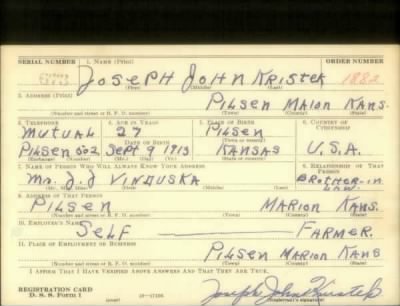 SERIAL NUMBER 1. NAME (Print) ORDER NUMBER
JOSEPH JOHN KRISTEK 1882
(First) (Middle) (Last)
2. ADDRESS (Print)
PILSEN MAION KANS.
(Number and street or R. F. D. number) (Town) (County) (State)
3. TELEPHONE 4. AGE IN YEARS 5. PLACE OF BIRTH 6. COUNTRY OF
CITIZENSHIP
MUTUAL 27 PILSEN
DATE OF BIRTH (Town or county)
PILSEN 502 SEPT 9 1913 KANSAS U.S.A.
(Exchange) (Number) (Mo.) (Day) (Yr.) (State or country)
7. NAME OF PERSON WHO WILL ALWAYS KNOW YOUR ADDRESS 8. RELATIONSHIP OF THAT
PERSON
MR. J. J VINDUSKA BROTHER-IN
LAW
(Mr., Mrs., Miss) (First) (Middle) (Last)
9. ADDRESS OF THAT PERSON
PILSEN MARION KANS.
(Number and street or R. F. D. number) (Town) (County) (State)
10. EMPLOYER'S NAME
SELF FARMER.
11. PLACE OF EMPLOYMENT OR BUSINESS
PILSEN MARION KANS
(Number and street or R. F. D. number) (Town) (County) (State)
I AFFIRM THAT I HAVE VERIFIED ABOVE ANSWERS AND THAT THEY ARE TRUE.
REGISTRATION CARD
D. S. S. Form 1 16—17105 Joseph John Kristek
(Registrant's signature)